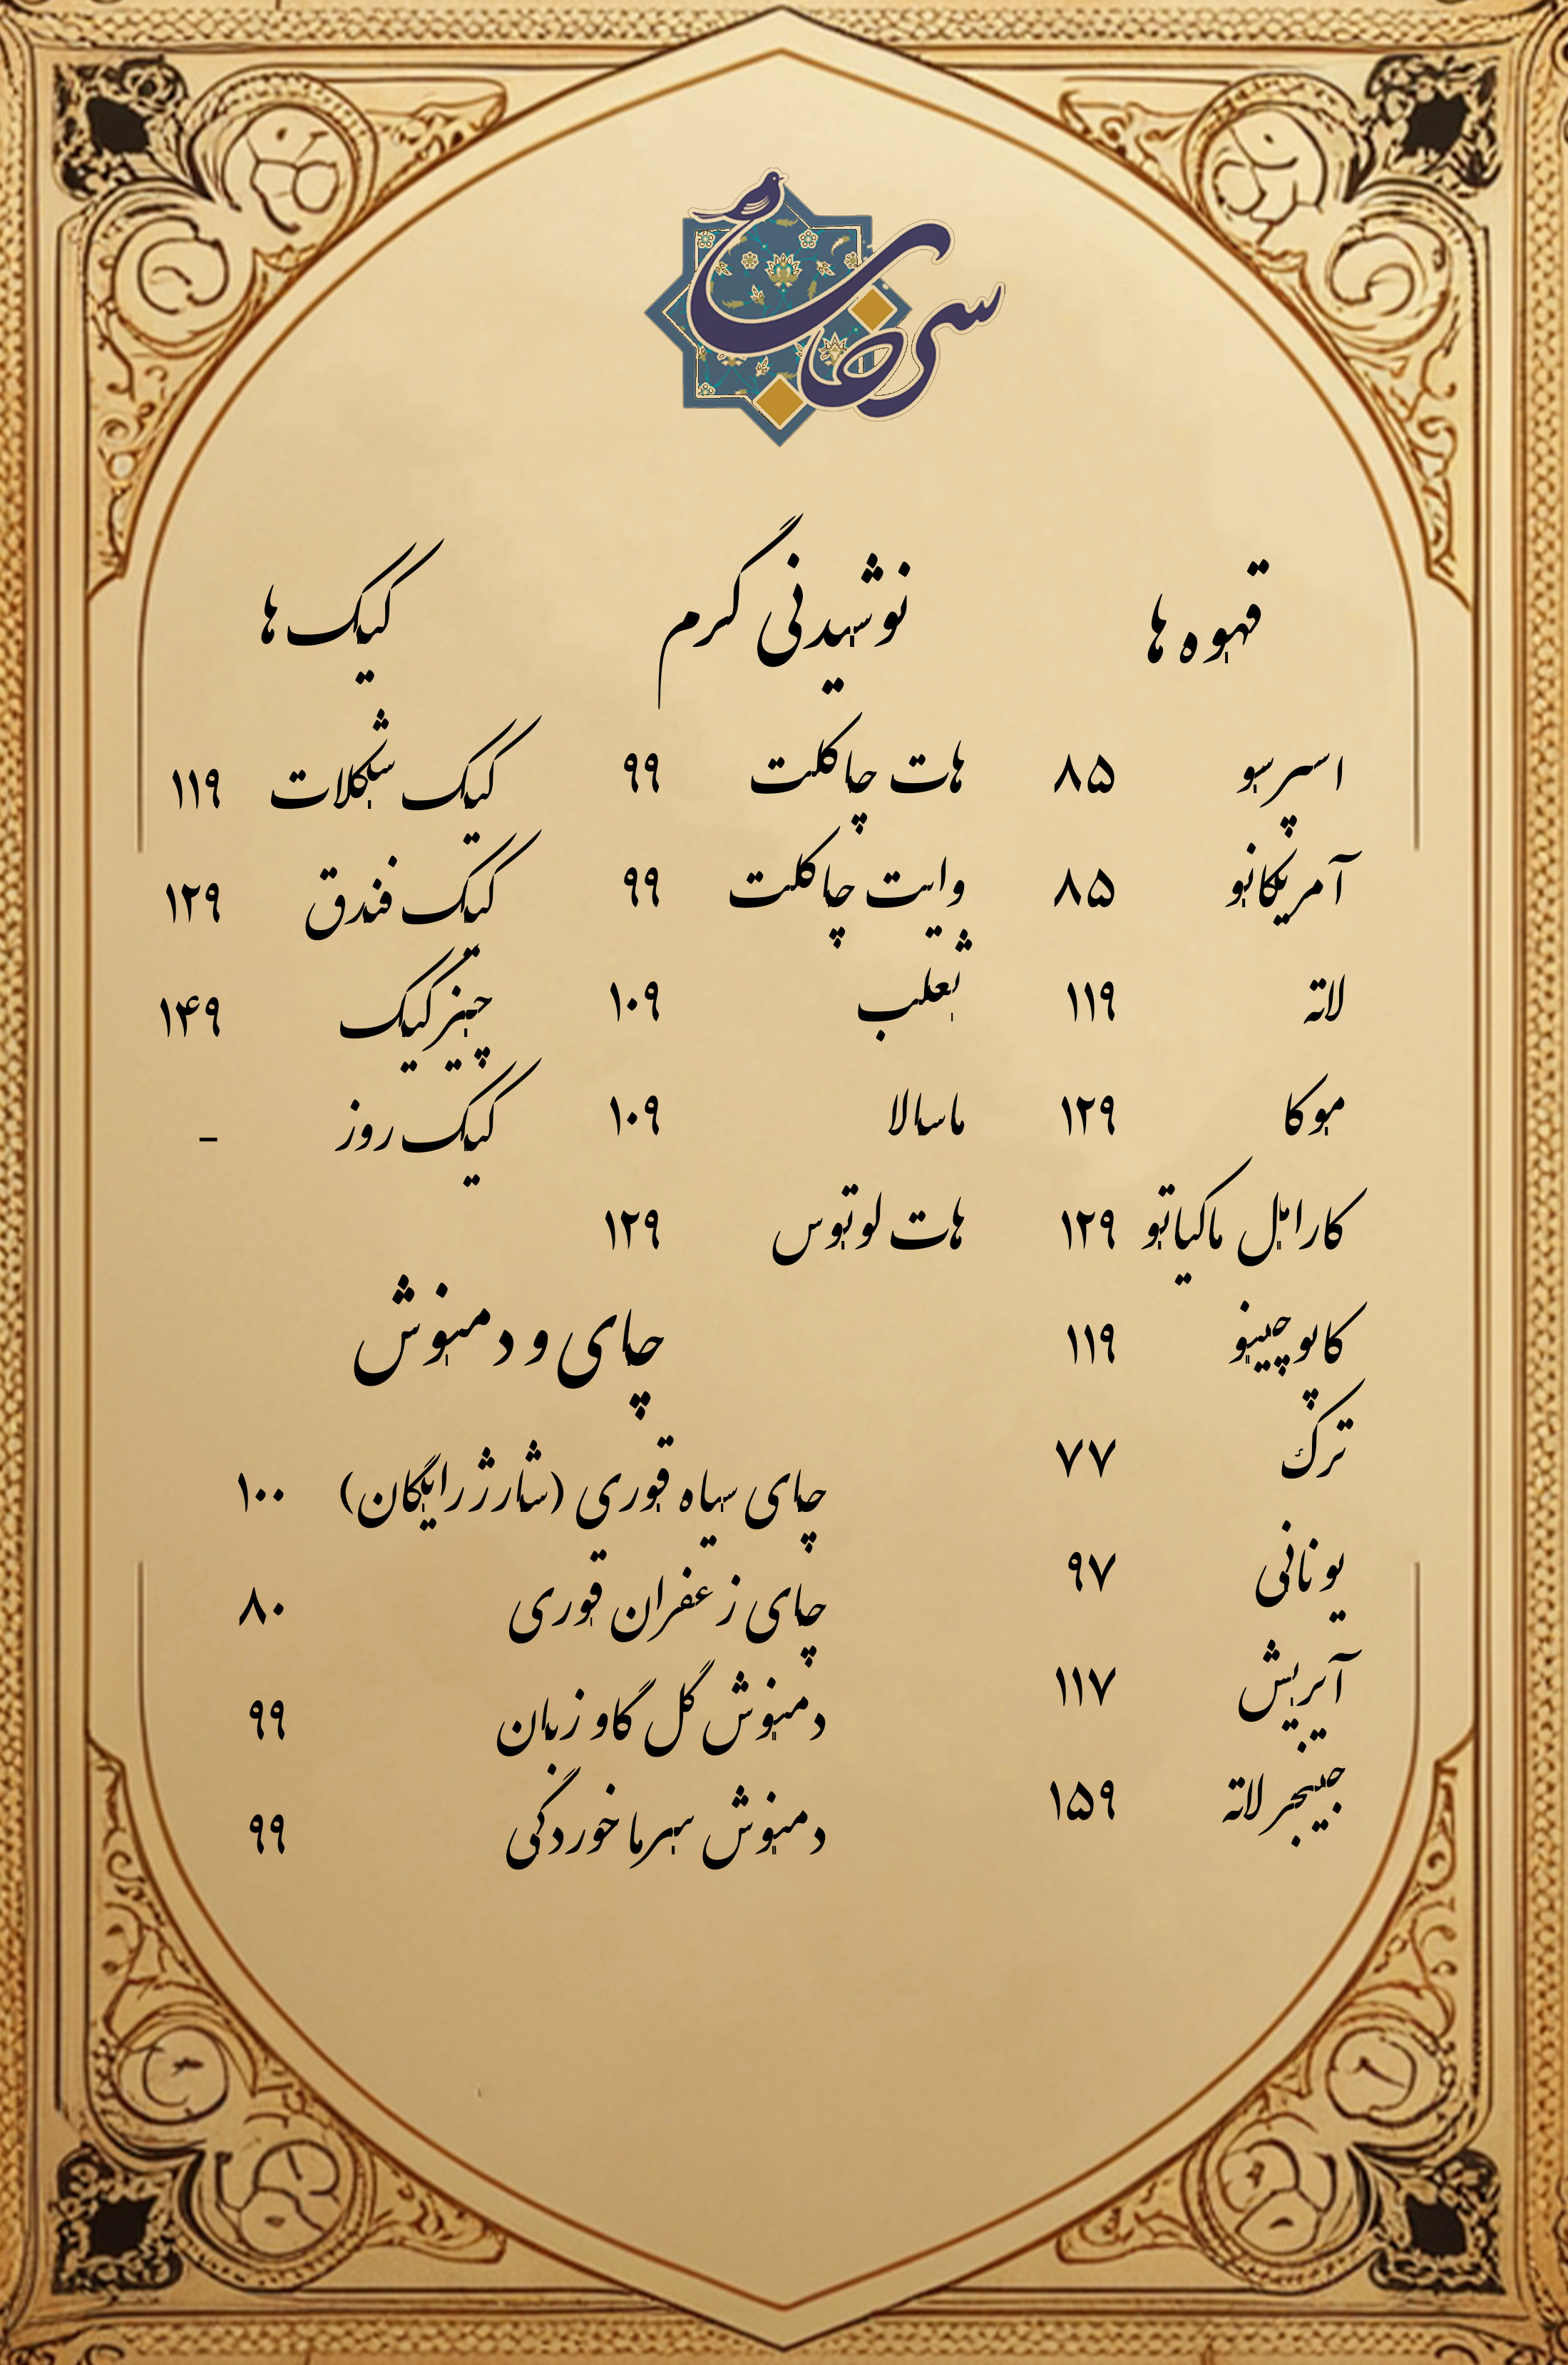 قهوه ها
اسپرسو ۸۵
آمریکانو ۸۵
لاته ۱۱۹
موکا ۱۲۹
کارامل ماکیاتو ۱۲۹
کاپوچینو ۱۱۹
ترک ۷۷
یونانی ۹۷
آیریش ۱۱۷
جینجر لاته ۱۵۹
نوشیدنی گرم
هات چاکلت ۹۹
وایت چاکلت ۹۹
ثعلب ۱۰۹
ماسالا ۱۰۹
هات لوتوس ۱۲۹
کیک ها
کیک شکلات ۱۱۹
کیک فندق ۱۲۹
چیزکیک ۱۴۹
کیک روز -
چای و دمنوش
چای سیاه قوری (شارژ رایگان) ۱۰۰
چای زعفران قوری ۸۰
دمنوش گل گاو زبان ۹۹
دمنوش سرما خوردگی ۹۹